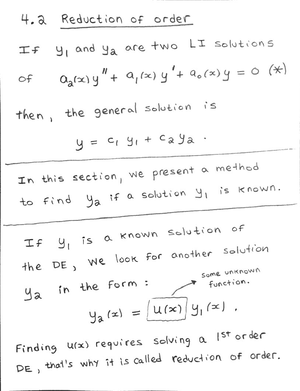 4.2 Reduction of order
If y₁ and y₂ are two LI solutions
of a₂(x)y″ + a₁(x)y′ + a₀(x)y = 0 (*)
then, the general solution is
y = c₁ y₁ + c₂ y₂ .
In this section, we present a method
to find y₂ if a solution y₁ is known.
If y₁ is a known solution of
the DE, we look for another solution
y₂ in the form :
some unknown
function.
y₂(x) = u(x) y₁(x) .
Finding u(x) requires solving a 1ST order
DE, that's why it is called reduction of order.